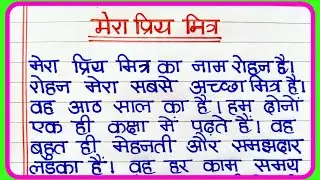 मेरा प्रिय मित्र
मेरा प्रिय मित्र का नाम रोहन है।
रोहन मेरा सबसे अच्छा मित्र है।
वह आठ साल का है। हम दोनों
एक ही कक्षा में पढ़ते हैं। वह
बहुत ही मेहनती और समझदार
लड़का हैं। वह हर काम समय